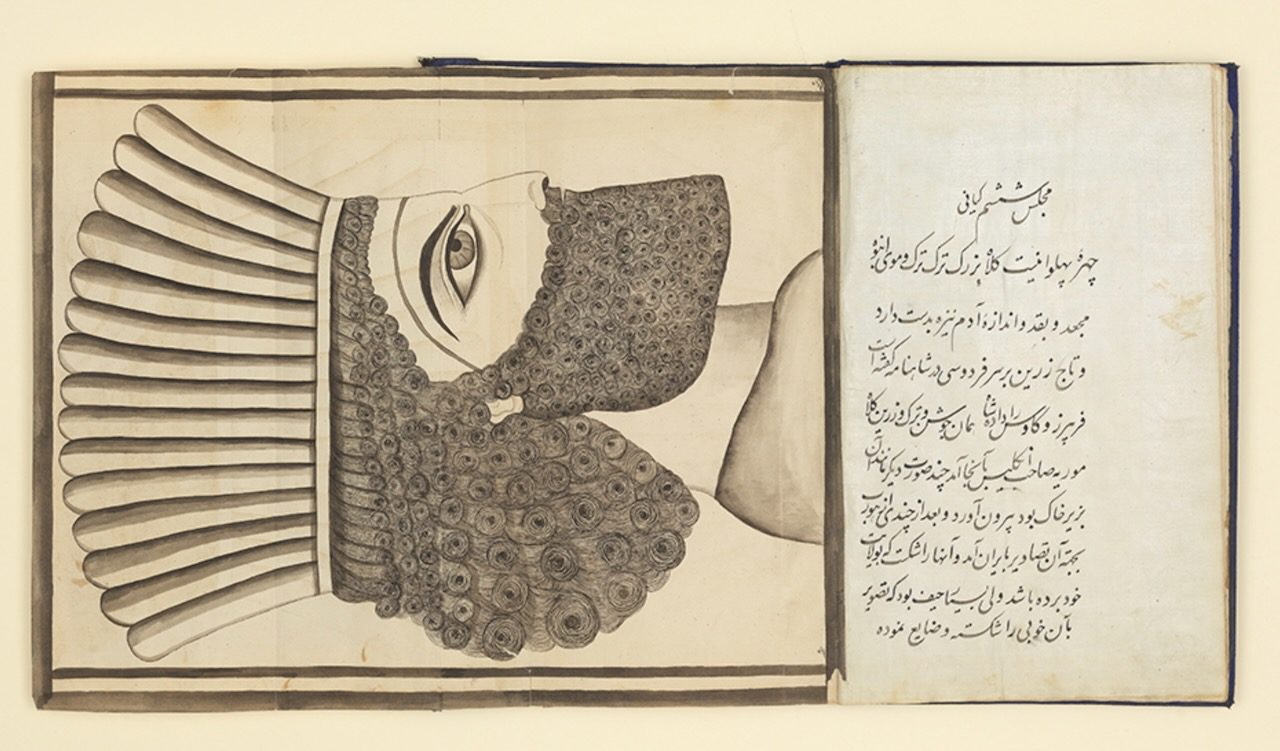 مجلس ششم کیانی
چهرهٔ پهلوانیست کلاه بزرگ ترک ترک و موی انبوه
مجعد و بقد و اندازهٔ آدم نیزه بدست دارد
و تاج زرین بر سر فردوسی در شاهنامه گفته است
فریبرز و کاوس را داده شاه همان جوشن و ترک و زرین کلاه
موریه صاحب انگلیس بآنجا آمد چند صورت دیگر مانند آن
بزیر خاک بود بیرون آورد و بعد از چندی از
بجهته آن تصاویر بایران آمد و آنها را شکست که بولایت
خود برده باشد ولی بسیار حیف بود که تصویر
بآن خوبی را شکسته و ضایع نموده